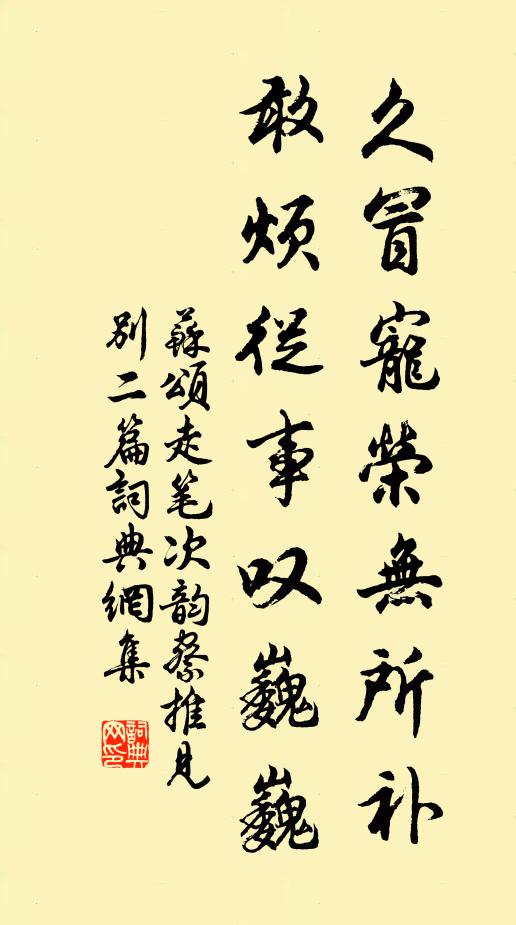 久冒寵榮無所补
敢烦從事叹巍巍
蘇頌走笔次韵蔡推見
别二篇詞典網集
詞典網印